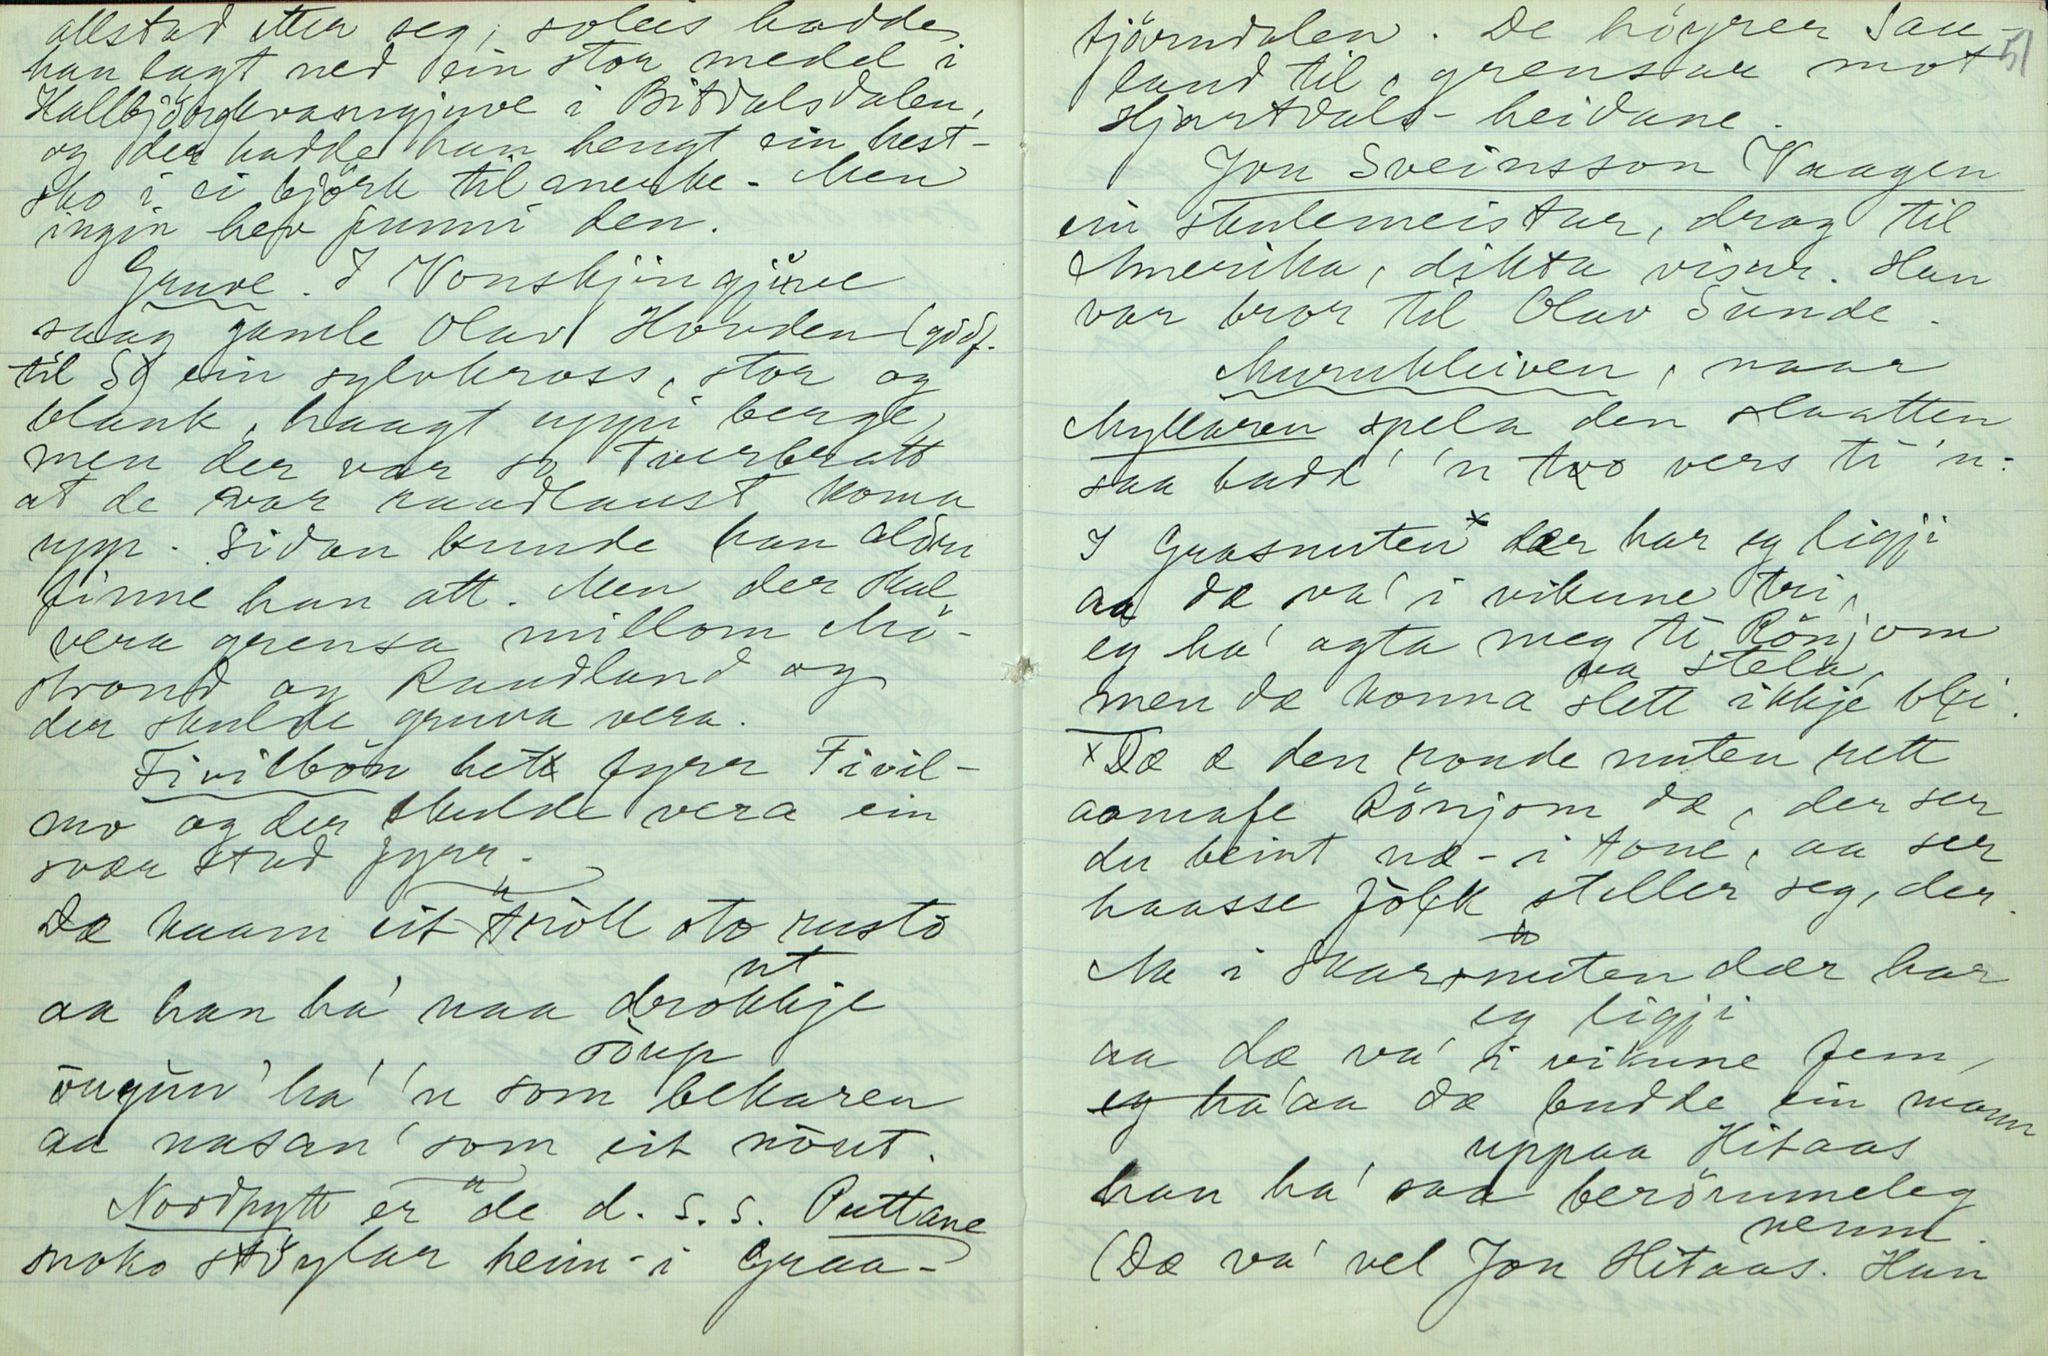 allstad etter seg, soleis hadde
han lagt ned ein stor medel i
Hallbjörgkvanngjuve i Bitdalsdalen,
og der hadde han hengt ein hest-
sko i ei björk til merke. Men
ingin hev funni den.
Gruve. I Vonskjingjuve
saag gamle Olav Hovden (godf.
til S) ein sylvkross, stor og
blank, haagt uppi berge,
men der var so tverbratt
at de var raadlaust koma
upp. Sidan kunde han aldri
finne han att. Men der skal
vera grensa millom Mö-
strond og Raudland og
der skulde gruva vera.
Fivilbön hett fyrr Fivil-
mo og der skulde vera ein
svær stad fyrr.
Dæ kaam eit tröll oto rusto
aa han ha' naa drökkje
ut
öugun' ha' 'n som bekaren
söup
aa nasan' som eit nöut.
Nordpytt er de d. s. s. Puttane
noko stöylar heim-i Graa-
51
tjörndalen. De höyrer Sau-
land til, grensar mot
Hjartdals-heidane.
Jon Sveinsson Vaagen
ein skulemeistar, drog til
Amerika, dikta visur. Han
var bror til Olav Sunde.
Murukleiven, naar
Myllaren spela den slaatten
saa hadd' 'n two vers ti 'n:
I Grasnuten x dær har eg ligji
aa dæ va' i vikune tri,
eg ha' agta meg ti Rönjom
aa stela,
men dæ konna slett ikkje bli.
x Dæ æ den ronde nuten rett
aomafe Rönjom dæ, der ser
du beint næ-i tone, aa ser
haasse fölk steller seg, der.
Mæ i Skarsnuten dær har
eg ligji
aa dæ va' i vikune fem,
eg ha' aa dæ budde ein mann
uppaa Hitaas
han ha' saa berömmeleg
nemn.
(Dæ va' vel Jon Hitaas. Han